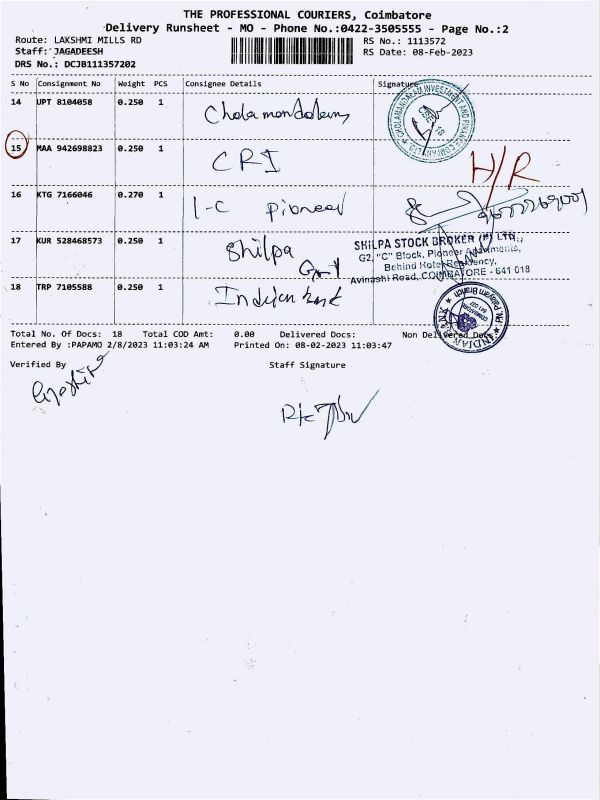 THE PROFESSIONAL COURIERS, Coimbatore
Delivery Runsheet - MO - Phone No.:0422-3505555 - Page No.:2
Route: LAKSHMI MILLS RD
RS No.: 1113572
Staff: JAGADEESH
RS Date: 08-Feb-2023
DRS No.: DCJB111357202
S No Consignment No Weight PCS Consignee Details Signature
14 UPT 8104058 0.250 1 Cholamandalam
CHOLAMANDALAM INVESTMENT AND FINANCE COMPANY LTD.
CBE 18
15 MAA 942698823 0.250 1 CRI H/R
16 KTG 7166046 0.270 1 I-C pioneer
17 KUR 528468573 0.250 1 Shilpa
SHILPA STOCK BROKER (P) LTD.,
G2, "C" Block, Pioneer Apartments,
Behind Hotel Residency,
Avinashi Road, COIMBATORE - 641 018
18 TRP 7105588 0.250 1 Indian bank
INDIAN BANK PN. Palayam Branch
COIMBATORE
641 037
Total No. Of Docs: 18 Total COD Amt: 0.00 Delivered Docs: Non Delivered Docs:
Entered By :PAPAMO 2/8/2023 11:03:24 AM Printed On: 08-02-2023 11:03:47
Verified By Staff Signature